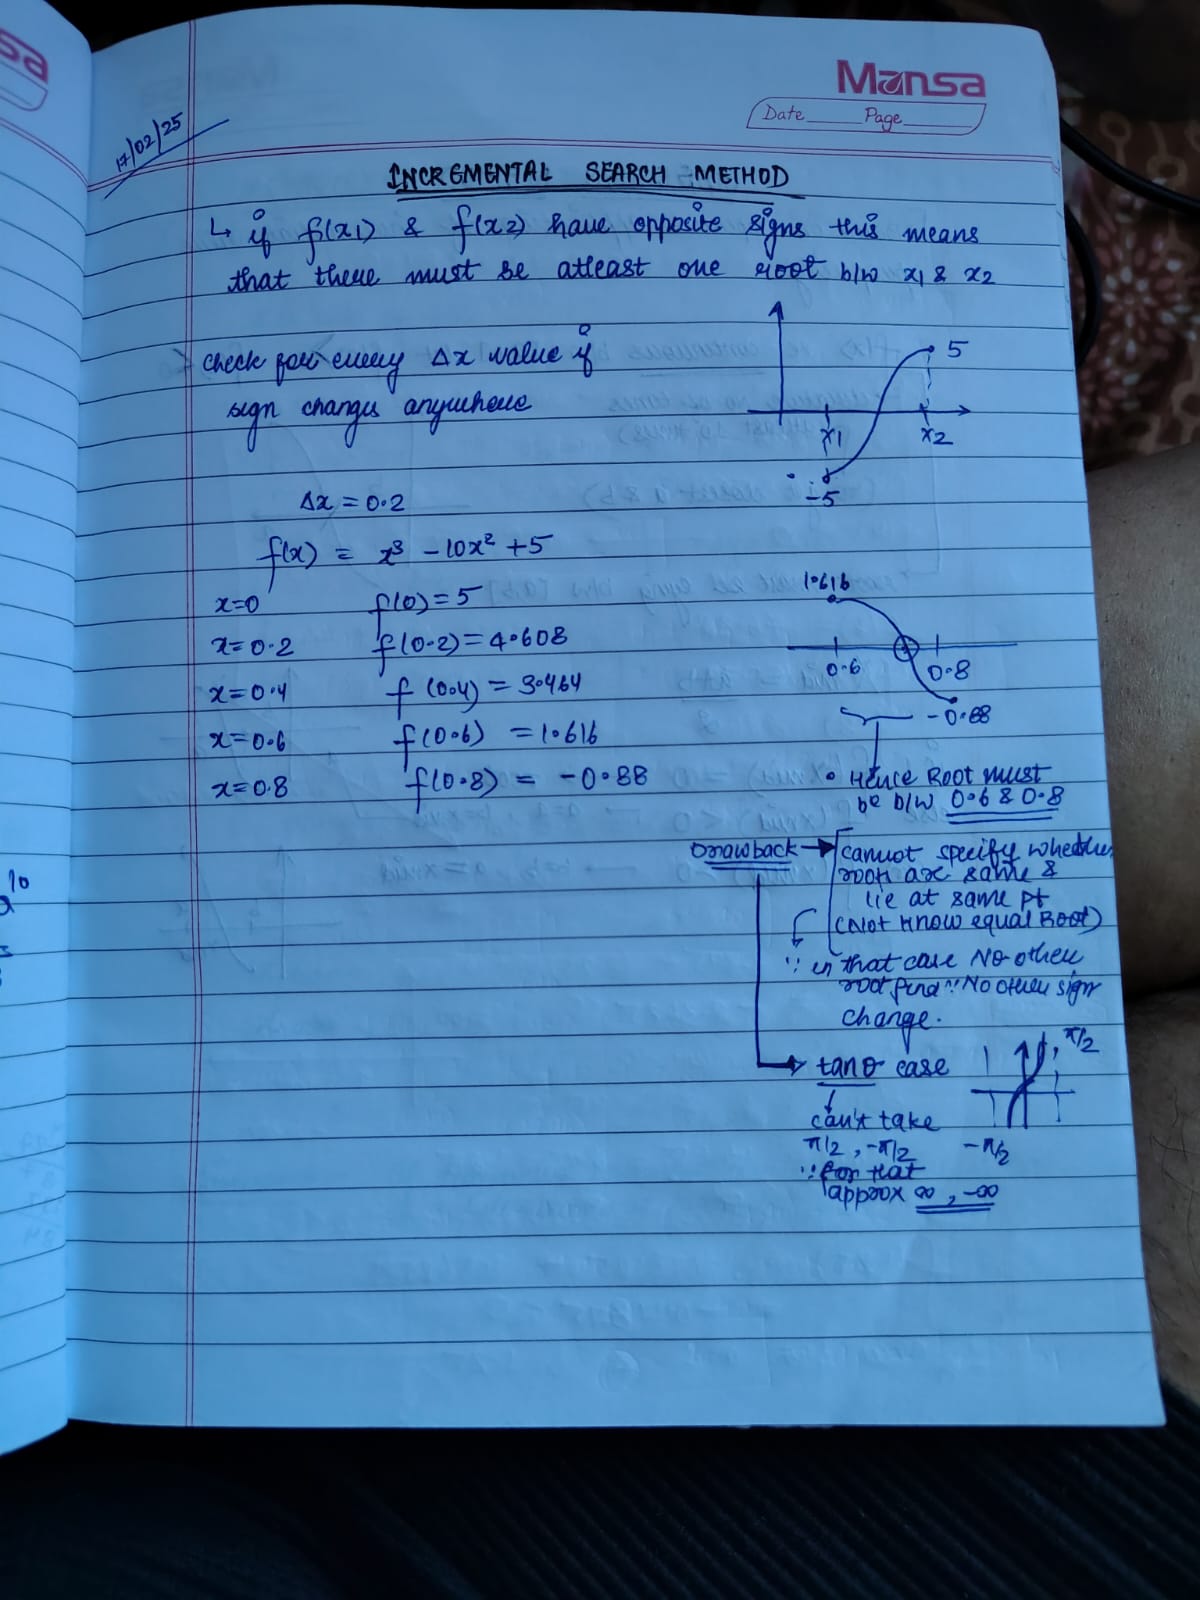 Mansa
Date Page
17/02/25
INCREMENTAL SEARCH METHOD
↳ if f(x1) & f(x2) have opposite signs this means
that there must be atleast one root b/w x1 & x2
check for every Δx value if
sign changes anywhere
5
x1 x2
-5
Δx = 0.2
f(x) = x³ - 10x² + 5
x=0 f(0) = 5
x=0.2 f(0.2) = 4.608
x=0.4 f(0.4) = 3.464
x=0.6 f(0.6) = 1.616
x=0.8 f(0.8) = -0.88
1.616
0.6 0.8
-0.88
• Hence Root must
be b/w 0.6 & 0.8
Drawback → cannot specify whether
roots are same &
lie at same pt
(Not know equal Root)
∵ in that case No other
root find ∵ No other sign
change.
→ tanθ case
π/2
can't take
π/2, -π/2
-π/2
∵ for that
approx ∞, -∞